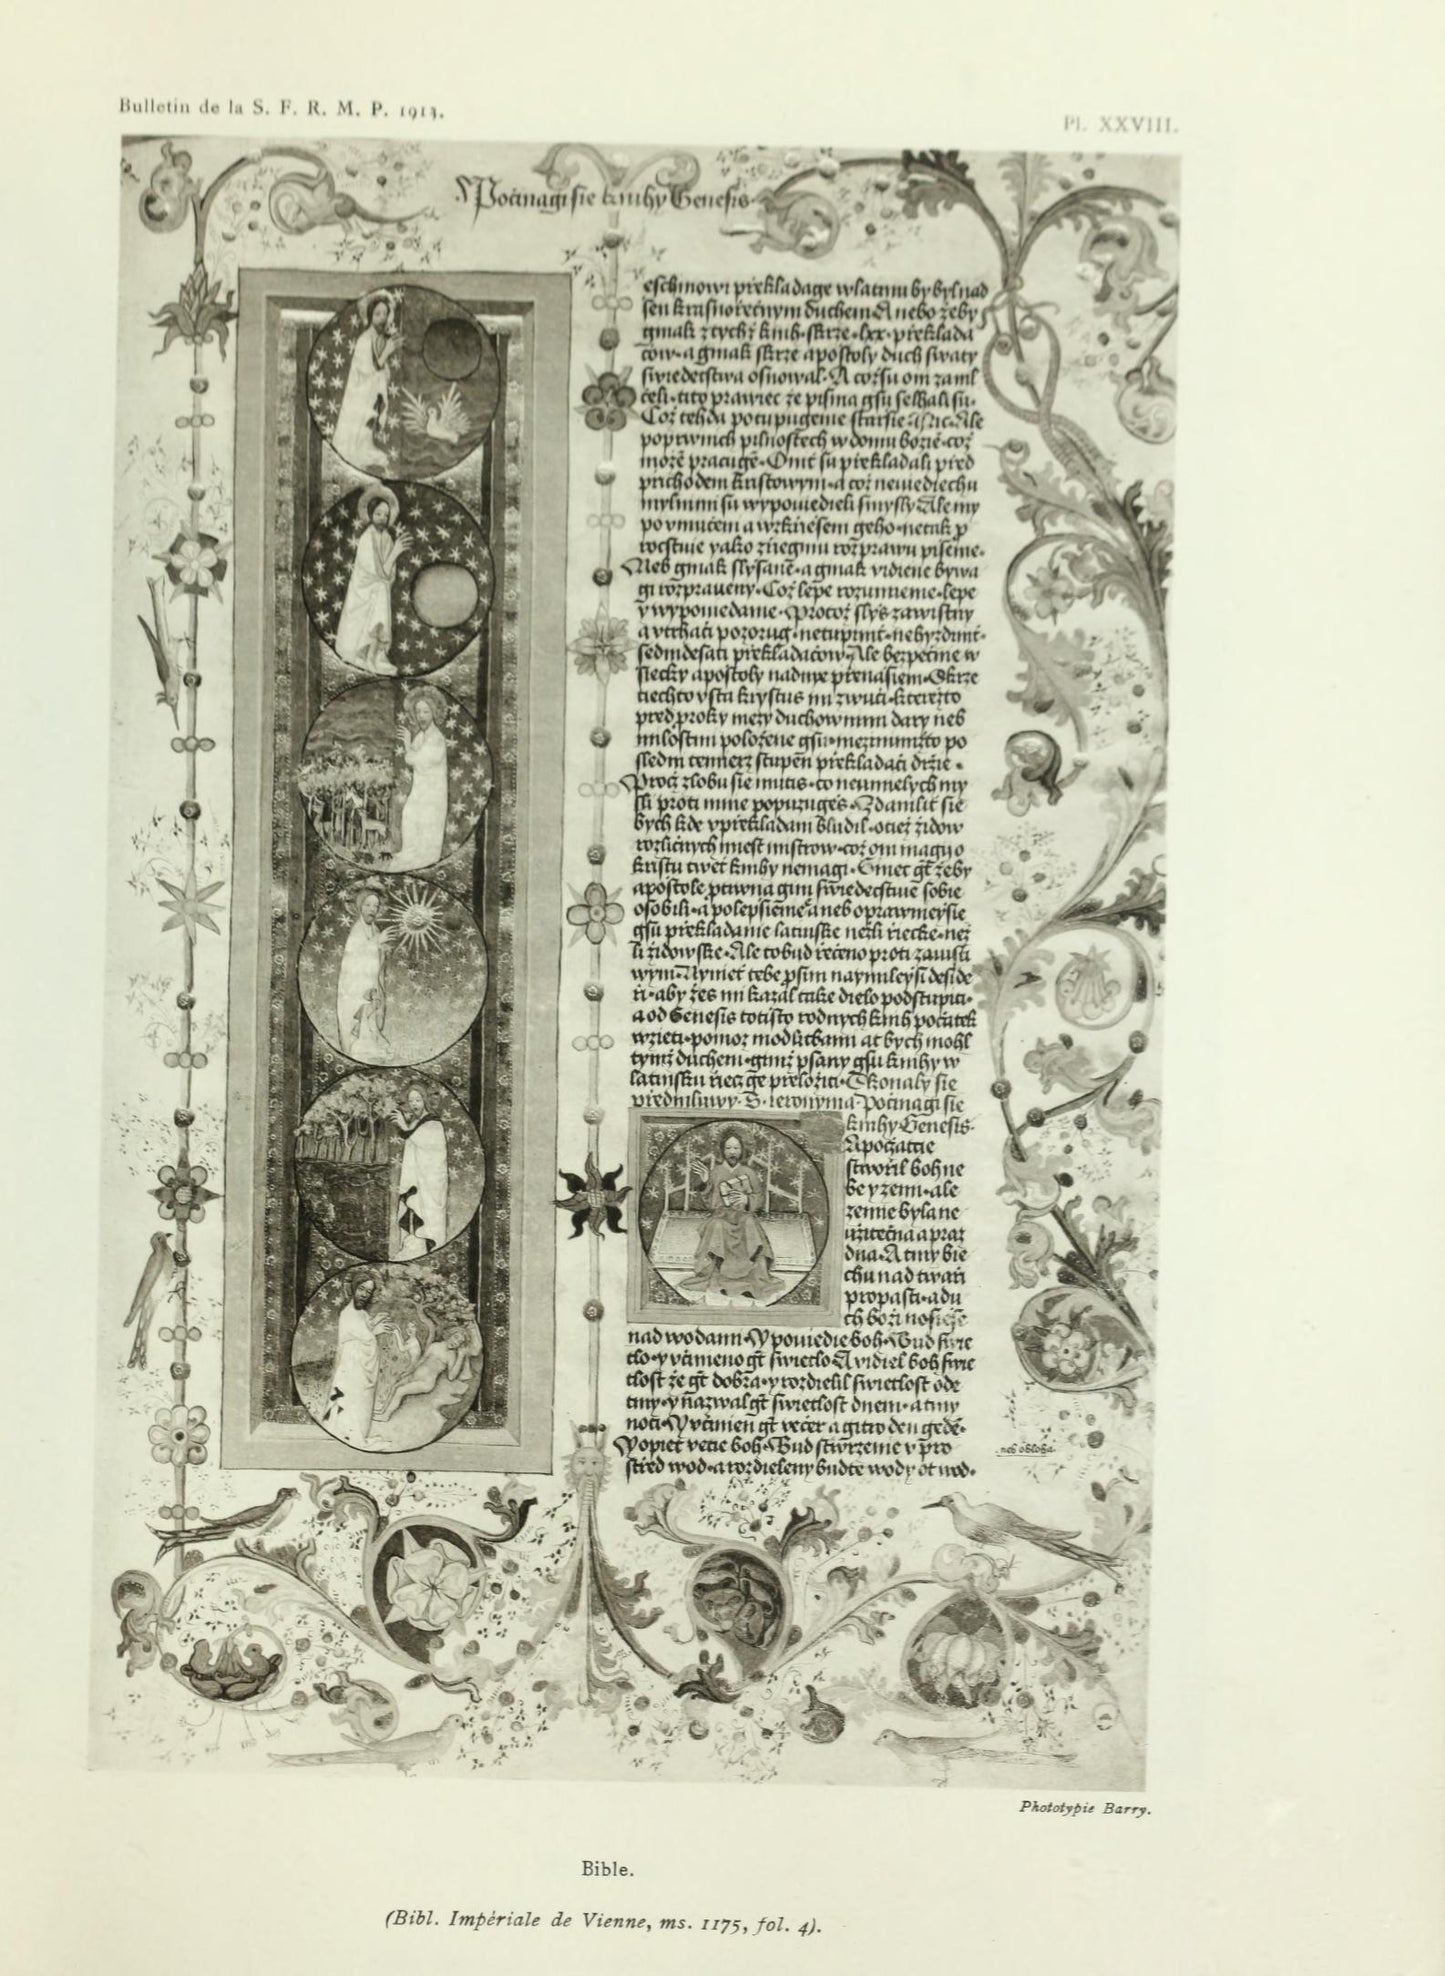 Bulletin de la S. F. R. M. P. 1913.
Pl. XXVIII.
Počinagi sie knihy Genesis
překladage w latinu by byl nad
šen krasnořečnym duchem A nebo žeby
ginak z tychž knih skrze lxx překlada
čow a ginak skrze apostoly duch swaty
swiedectwa osnowal A cožsu oni zaml
čeli tito prawiec že pisma gsu
Což tehda potupugeme starsie Ale
po prwnich pilnostech w domu božiē což
možē pracugē Onit su překladali před
přichodem kristowym a což newiediechu
mylnimi su wypowiedieli smysly Ale my
po vmučeni a wzkřiešeni geho netak p
roctwie yako
Neb ginak slyšanē a ginak vidiene bywa
gi rozpraweny Což lepe rozumieme lepe
y wypowiedame Protož slyš zawistny
sedmdesati překladačow Ale bezpečnie w
apostoly
tiechto vsta krystus mi zwuči kterežto
před proky mezy duchownimi dary neb
milostmi položene gsu
stupeň překladači držie
Proč zlobu sie
sli proti mne popuzugeš Zdaliť sie
bych kde v překladani bludil otiež židow
rozličnych miest mistrow což oni magi o
kristu twē knihy nemagi Ginet gt žeby
apostole gim swiedectwie sobie
osobili a polepšienē a neb oprawnieyšie
gsu překladanie latinske nežli řecke než
li židowske Ale to bud řečeno proti zawisti
wym Nynieť tebe psim naymileyši deside
ři aby žes mi kazal take dielo podstupiti
a od Genesis totižto rodnych knih počatek
wzieti pomoz modlitbami at bych mohl
tymž duchem gimž psany gsu knihy w
latinsku řiecz ge přeložiti Skonaly sie
předmluwy S. Ieronyma Počinagi sie
knihy Genesis
Na počattie
stwořil boh ne
be y zemi ale
zemie bylane
užitečna a praz
dna A tmy bie
chu nad twaři
propasti a du
ch boži nosieše
nad wodami Y powiedie boh Bud swie
tlo y včineno gt swietlo A vidiel boh swie
tlost že gt dobra y rozdielil swietlost ode
tmy y nazwal gt swietlost dnem a tmy
noci Y včinien gt večer a gitro den geden
Y opiet vecie boh Bud stwrzenie v pro
střed wod a rozdieleny budte wody ot wod
neb obloha
Phototypie Barry.
Bible.
(Bibl. Impériale de Vienne, ms. 1175, fol. 4).